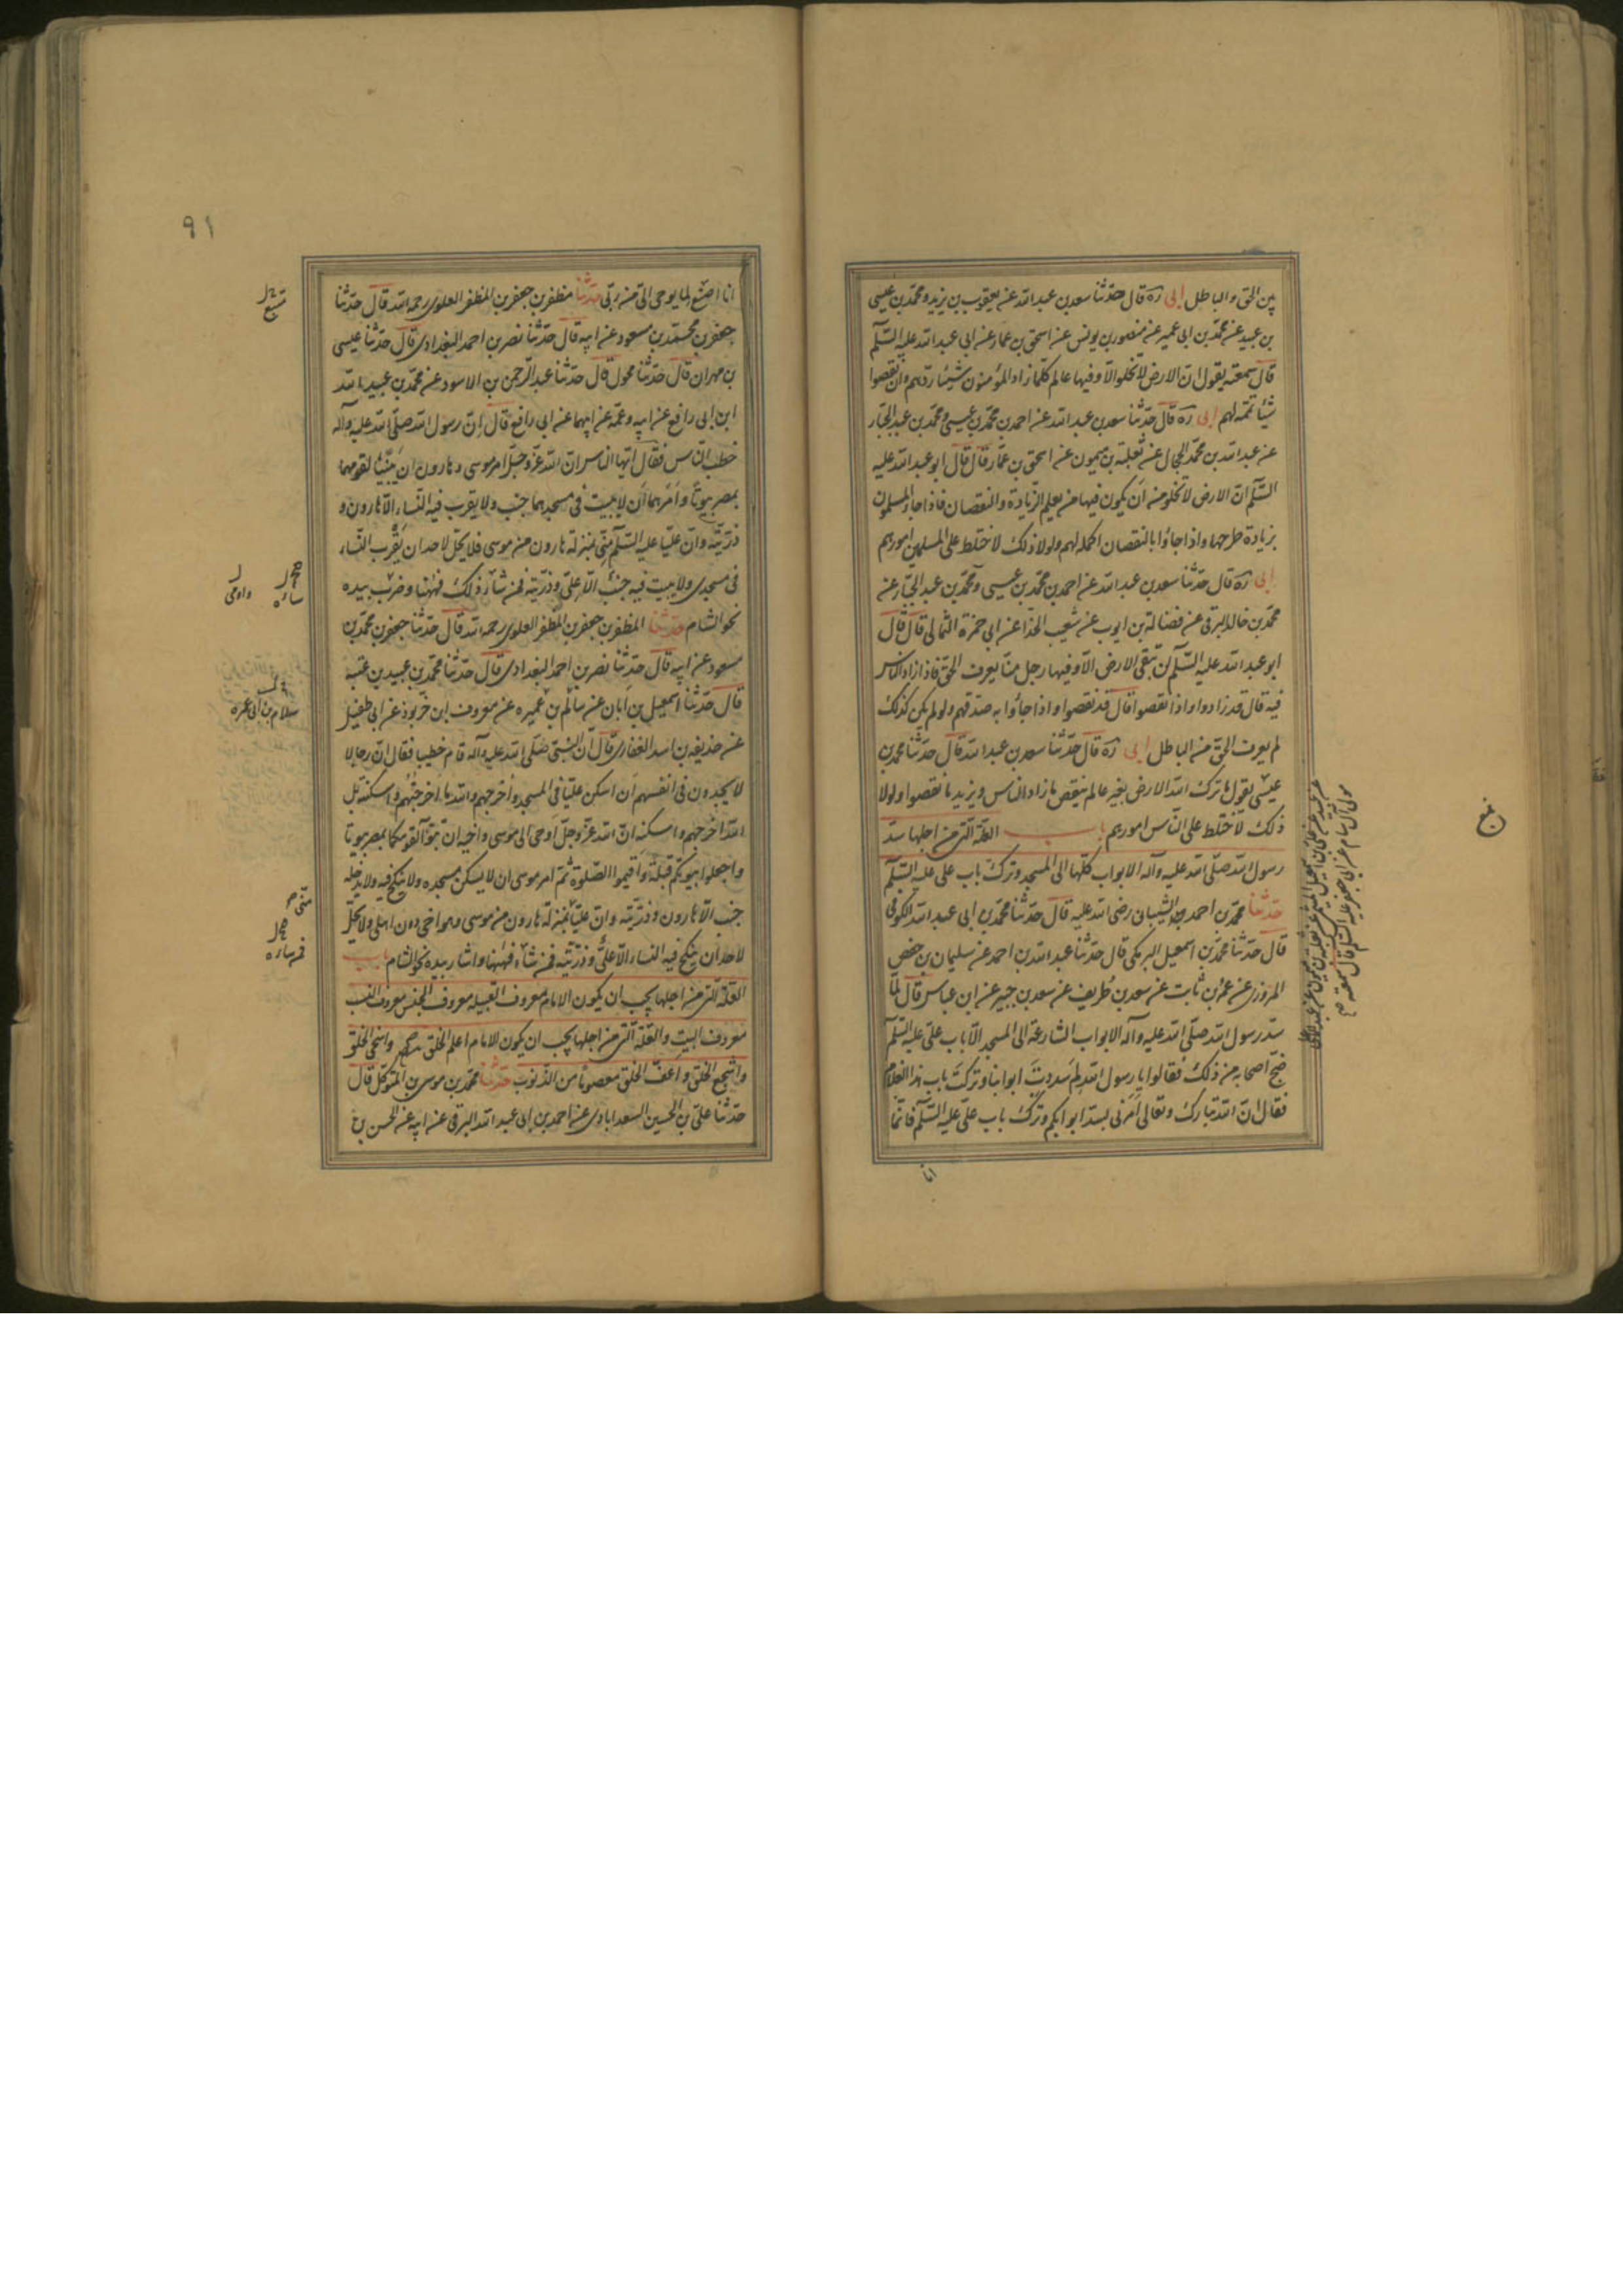 بين الحق والباطل ابى ره قال حدثنا سعد بن عبد الله عن يعقوب بن يزيد ومحمد بن عيسى
بن عبيد عن محمد بن ابى عمير عن منصور بن يونس عن اسحق بن عمار عن ابى عبد الله عليه السلام
قال سمعته يقول ان الارض لا تخلو الا وفيها عالم كلما زاد المؤمنون شيئا ردهم وان نقصوا
شيئا تممه لهم ابى ره قال حدثنا سعد بن عبد الله عن احمد بن محمد بن عيسى ومحمد بن عبد الجبار
عن عبد الله بن محمد الحجال عن ثعلبة بن ميمون عن اسحق بن عمار قال قال ابو عبد الله عليه
السلام ان الارض لا تخلو من ان يكون فيها من يعلم الزيادة والنقصان فاذا جاء المسلمون
بزيادة طرحها واذا جاؤا بالنقصان اكمله لهم ولولا ذلك لاختلط على المسلمين امورهم
ابى ره قال حدثنا سعد بن عبد الله عن احمد بن محمد بن عيسى ومحمد بن عبد الجبار عن
محمد بن خالد البرقى عن فضالة بن ايوب عن شعيب الحذا عن ابى حمزة الثمالى قال قال
ابو عبد الله عليه السلام لن تبقى الارض الا وفيها رجل منا يعرف الحق فاذا زاد الناس
فيه قال قد زادوا واذا نقصوا قال قد نقصوا واذا جاؤا به صدقهم ولو لم يكن كذلك
لم يعرف الحق من الباطل ابى ره قال حدثنا سعد بن عبد الله قال حدثنا محمد بن
عيسى يقول ما ترك الله الارض بغير عالم ينقص ما زاد الناس ويزيد ما نقصوا ولولا
ذلك لاختلط على الناس امورهم باب العلة التى من اجلها سد
رسول الله صلى الله عليه وآله الابواب كلها الى المسجد وترك باب على عليه السلام
حدثنا محمد بن احمد الشيبانى رضى الله عليه قال حدثنا محمد بن ابى عبد الله الكوفى
قال حدثنا محمد بن اسمعيل البرمكى قال حدثنا عبد الله بن احمد عن سليمان بن حفص
المروزى عن عمرو بن ثابت عن سعد بن طريف عن سعيد بن جبير عن ابن عباس قال لما
سد رسول الله صلى الله عليه وآله الابواب الشارعة الى المسجد الا باب على عليه السلام
ضج اصحابه من ذلك فقالوا يا رسول الله لم سددت ابوابنا وتركت باب هذا الغلام
فقال ان الله تبارك وتعالى امرنى بسد ابوابكم وترك باب على عليه السلام فانما
انا
موسى آل سام عن ابى جعفر عليه السلام قال سمعته
بلغ
٩١
انا اصنع لما يوحى الى من ربى حدثنا مظفر بن جعفر بن المظفر العلوى رحمه الله قال حدثنا
جعفر بن محمد بن مسعود عن ابيه قال حدثنا نصر بن احمد البغدادى قال حدثنا عيسى
بن مهران قال حدثنا مخول قال حدثنا عبد الرحمن بن الاسود عن محمد بن عبيد الله
ابن ابى رافع عن ابيه وعمه عن ابيهما عن ابى رافع قال ان رسول الله صلى الله عليه وآله
خطب الناس فقال ايها الناس ان الله عز وجل امر موسى وهارون ان يبنيا لقومهما
بمصر بيوتا وامرهما ان لا يبيت فى مسجدهما جنب ولا يقرب فيه النساء الا هارون و
ذريته وان عليا عليه السلام منى بمنزلة هارون من موسى فلا يحل لاحد ان يقرب النساء
فى مسجدى ولا يبيت فيه جنب الا على وذريته فمن شاء ذلك فههنا وضرب بيده
نحو الشام حدثنا المظفر بن جعفر بن المظفر العلوى رحمه الله قال حدثنا جعفر بن محمد بن
مسعود عن ابيه قال حدثنا نصر بن احمد البغدادى قال حدثنا محمد بن عبيد بن عتبة
قال حدثنا اسمعيل بن ابان عن سالم بن عميره عن معروف ابن خربوذ عن ابى طفيل
عن حذيفه بن اسد الغفارى قال ان النبى صلى الله عليه وآله قام خطيبا فقال ان رجالا
لا يجدون فى انفسهم ان اسكن عليا فى المسجد واخرجهم والله ما اخرجتهم واسكنته بل
الله اخرجهم واسكنه ان الله عز وجل اوحى الى موسى واخيه ان تبوآ لقومكما بمصر بيوتا
واجعلوا بيوتكم قبلة واقيموا الصلوة ثم امر موسى ان لا يسكن مسجده ولا ينكح فيه ولا يدخله
جنب الا هارون وذريته وان عليا بمنزلة هارون من موسى وهو اخى دون اهلى ولا يحل
لاحد ان ينكح فيه النساء الا على وذريته فمن شاء فههنا واشار بيده نحو الشام باب
العلة التى من اجلها يجب ان يكون الامام معروف القبيلة معروف الجنس معروف النسب
معروف البيت والعلة التى من اجلها يجب ان يكون الامام اعلم الخلق واسخى الخلق
واشجع الخلق واعف الخلق معصوما من الذنوب حدثنا محمد بن موسى بن المتوكل قال
حدثنا على بن الحسين السعدابادى عن احمد بن ابى عبد الله البرقى عن ابيه عن الحسن بن
سلام بن ابى عمره